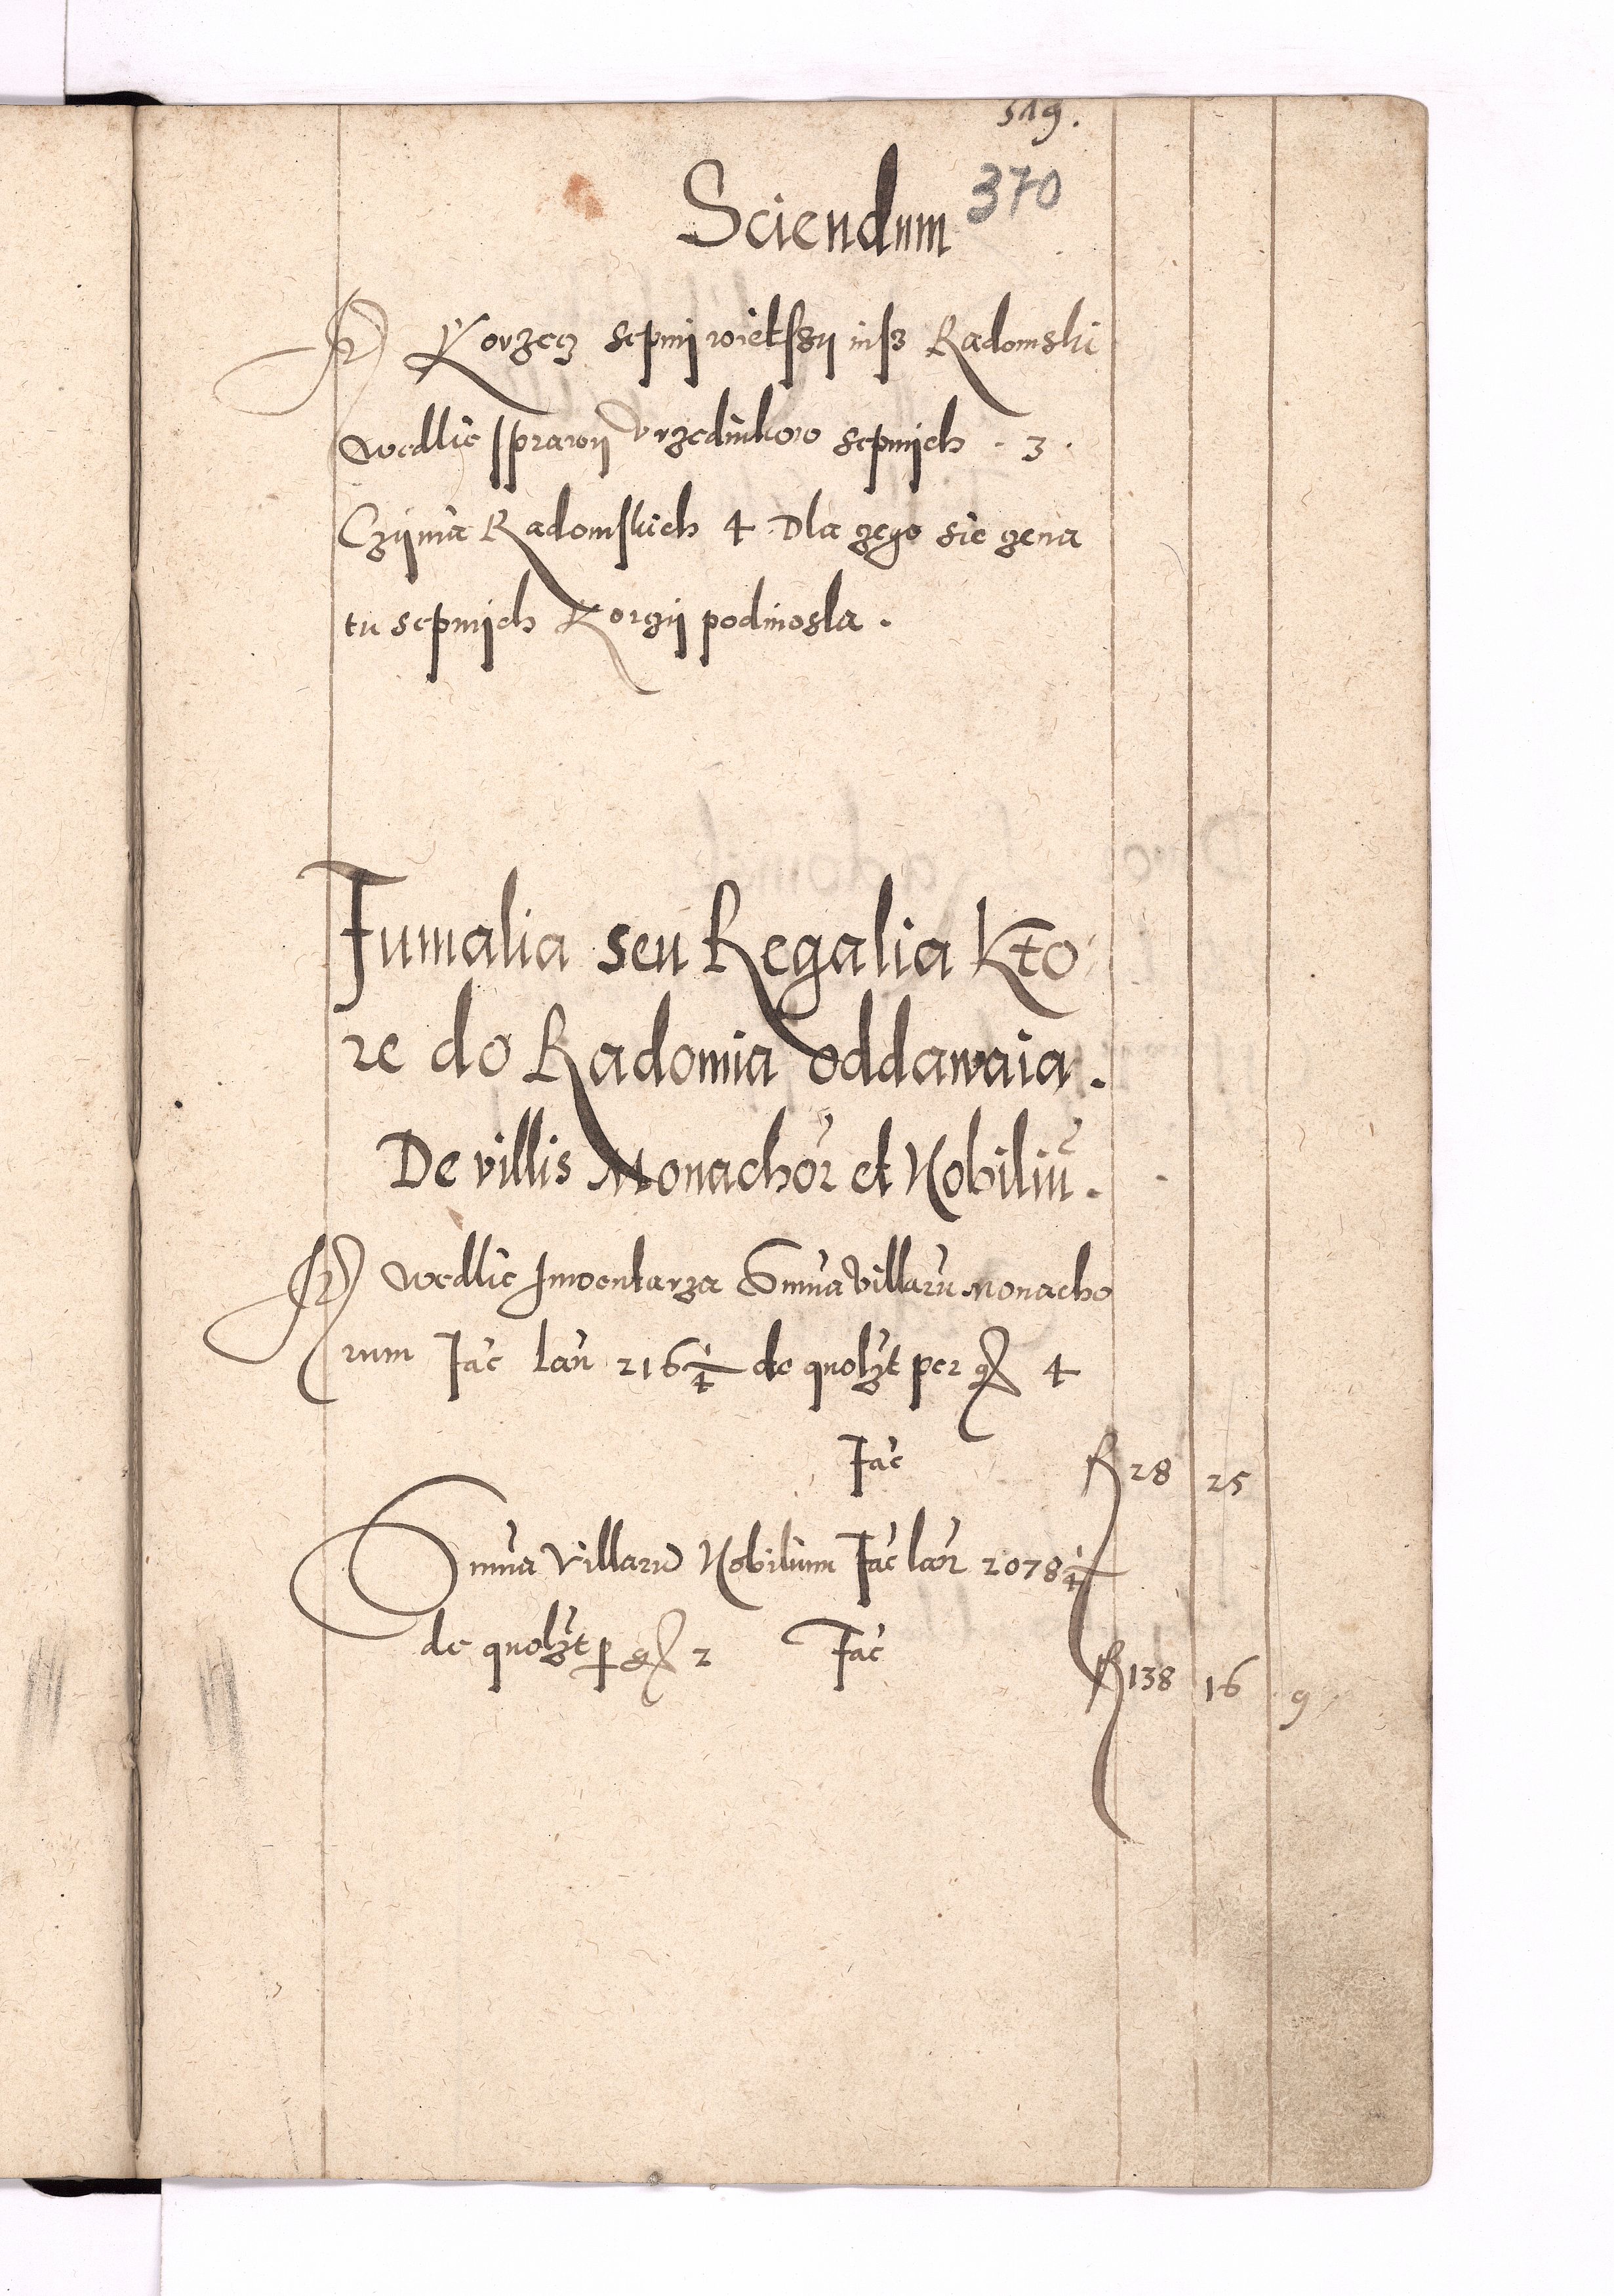 519.
370
Sciendum
Korzecz sepny wietssy niss Radomski
wedlie sprawy vrzednikow sepnych . 3 .
Czynia Radomskich 4 Dla czego sie czena
tu sepnych Korczy podniosla .
Fumalia seu Regalia Kto
re do Radomia oddawaia .
De villis Monachor et Nobiliu .
wedlie Inwentarza Suma villaru Monacho
rum fac lan 216 1/4 de quolzt per 4
fac 28 25
Suma villaru Nobilium fac lan 2078 1/4
de quolzt p 2 fac 138 16 9